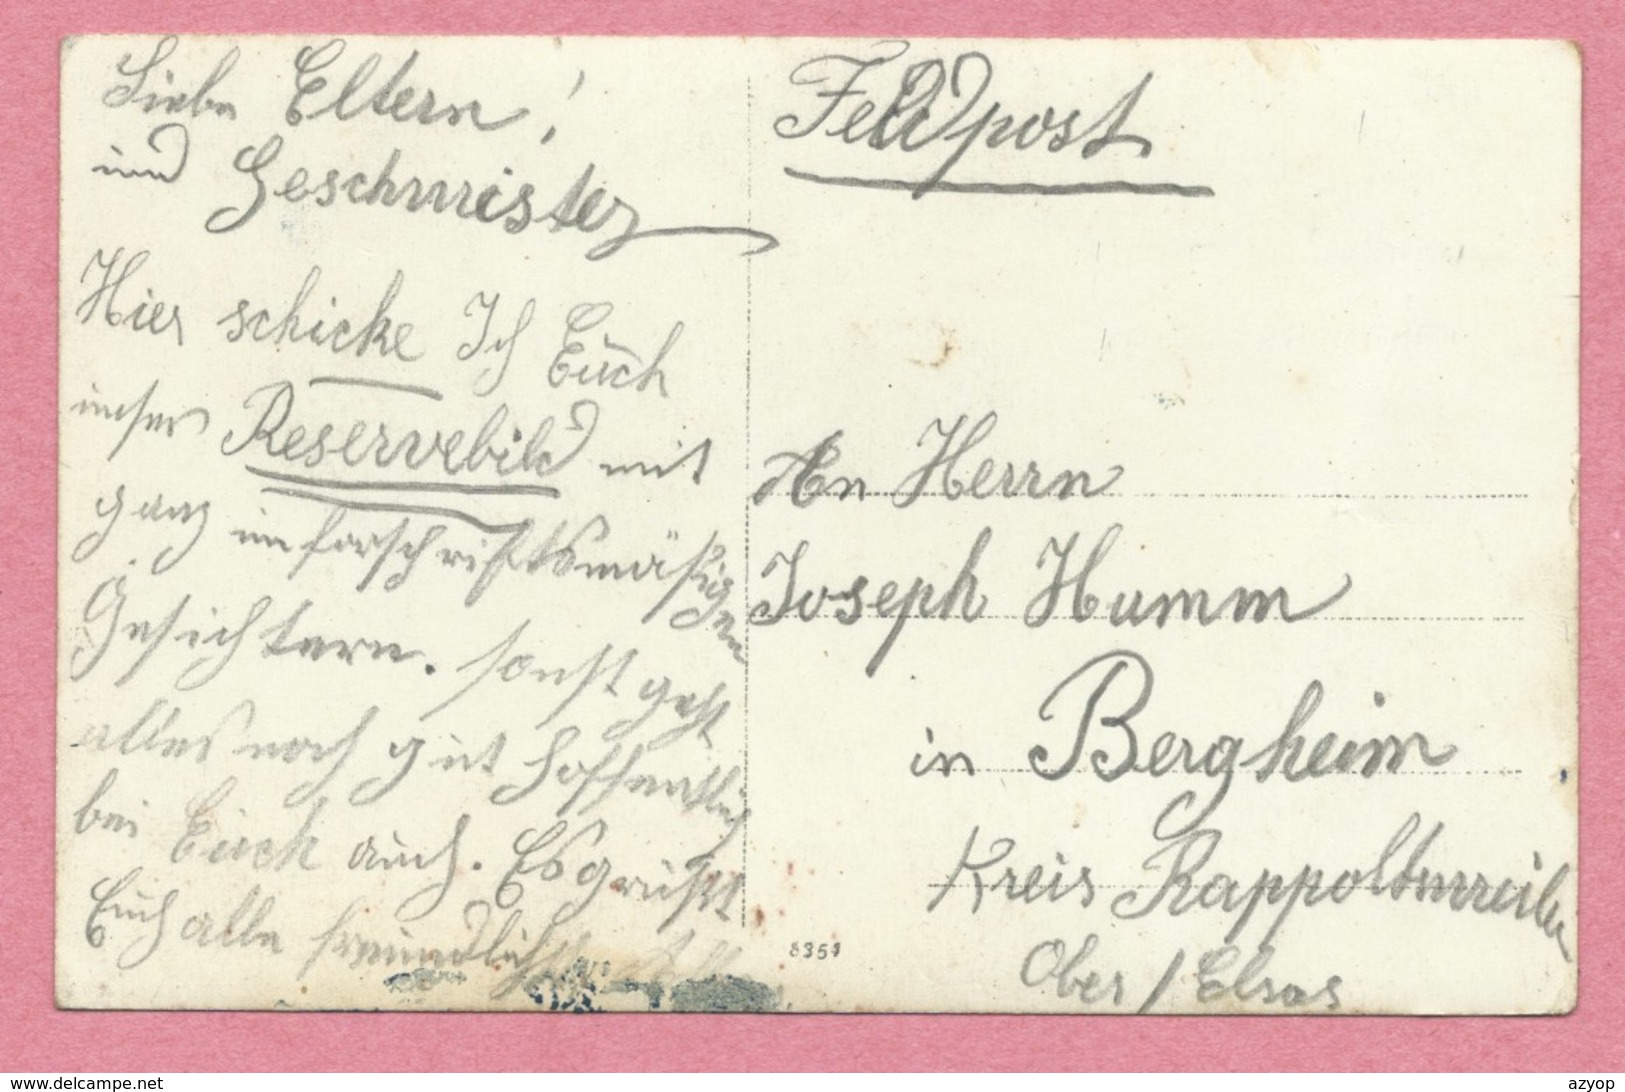 Liebe Eltern!
und Geschwister
Hier schicke Ich Euch
unser Reservebild mit
ganz unforschriftsmäßigen
Gesichtern. sonst geht
alles noch gut hoffentlich
bei Euch auch. Es grüßt
Euch alle freundlichst
Feldpost
An Herrn
Joseph Humm
in Bergheim
Kreis Rappoltsweiler
Ober / Elsas
8351
Delcampe.net
azyop